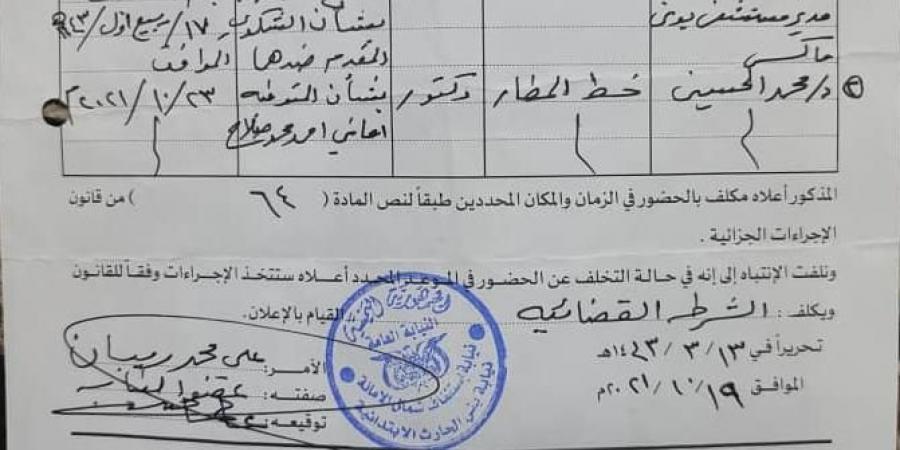 مدير مستشفى يوني بشأن الشكوى ١٧/ربيع اول/١٤٤٣
ماكس المقدم ضدها الموافق
٢ د/محمد الحسيني خط المطار دكتور بشأن المتوفيه ٢٠٢١/١٠/٢٣م
اماني احمد محمد صلاح
المذكور أعلاه مكلف بالحضور في الزمان والمكان المحددين طبقاً لنص المادة ( ٦٤ ) من قانون
الإجراءات الجزائية .
ونلفت الإنتباه إلى إنه في حالة التخلف عن الحضور في الموعد المحدد أعلاه ستتخذ الإجراءات وفقاً للقانون
ويكلف : الشرطه القضائيه القيام بالإعلان.
تحريراً في ١٣/٣/١٤٤٣هـ
الموافق ١٩/١٠/٢٠٢١م
الآمر: علي محمد ريبان
صفته: عضو النيابه
توقيعه:
النيابة العامة
نيابة إستئناف شمال الامانة
نيابة بني الحارث الابتدائية